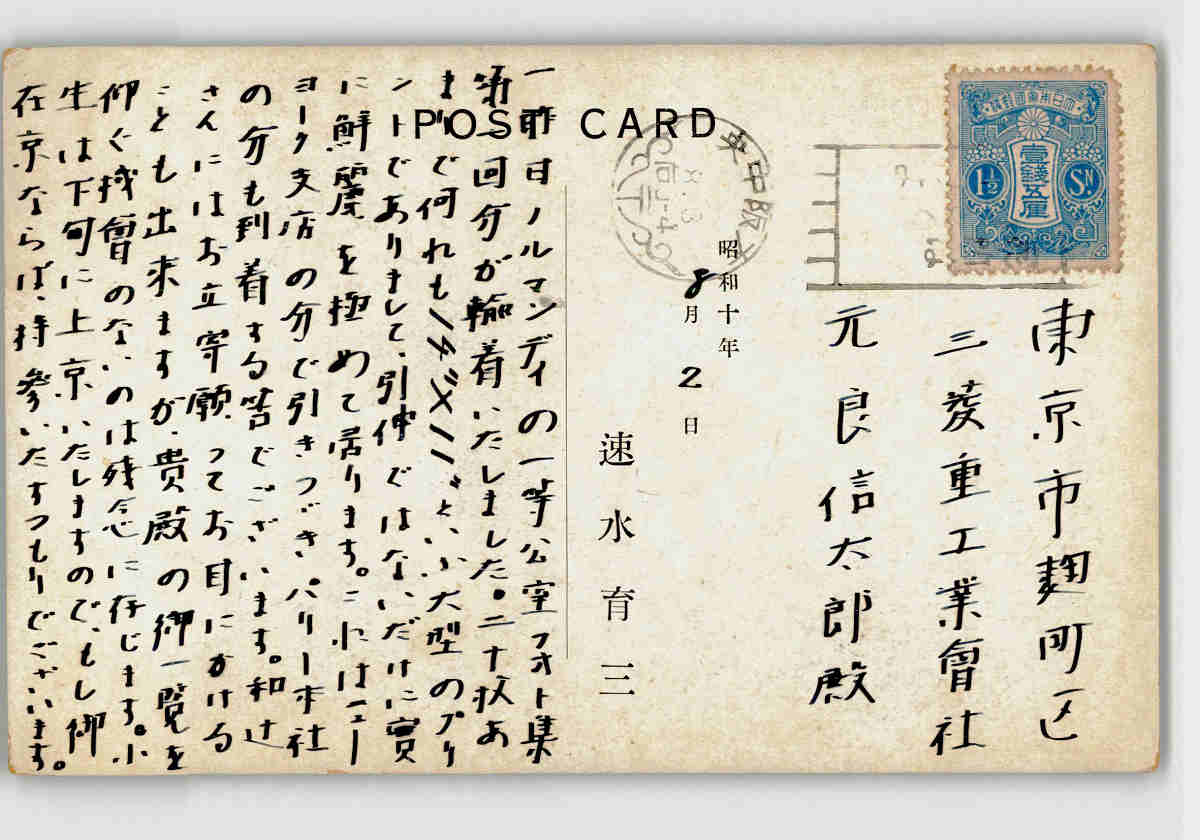 POST CARD
大日本帝國郵便
壹錢五厘
1½ SN.
大阪中央
東京市麹町区
三菱重工業會社
元良信太郎殿
昭和十年
8月2日
速水育三
一昨日ノルマンディの一等公室フォト集
第一回分が輸着いたしました。二十枚あ
まりで何れも14"×11"といふ大型のプリ
ントでありまして、引伸ではないだけに實
に鮮麗を極めて居ります。これはニュー
ヨーク支店の分で引きつゞき、パリー本社
の分も到着する筈でございます。和辻
さんにはお立寄願つてお目にかける
ことも出来ますが、貴殿の御一覧を
仰ぐ機會のないのは残念に存じます。小
生は下旬に上京いたしますので、もし御
在京ならば、持参いたすつもりでございます。